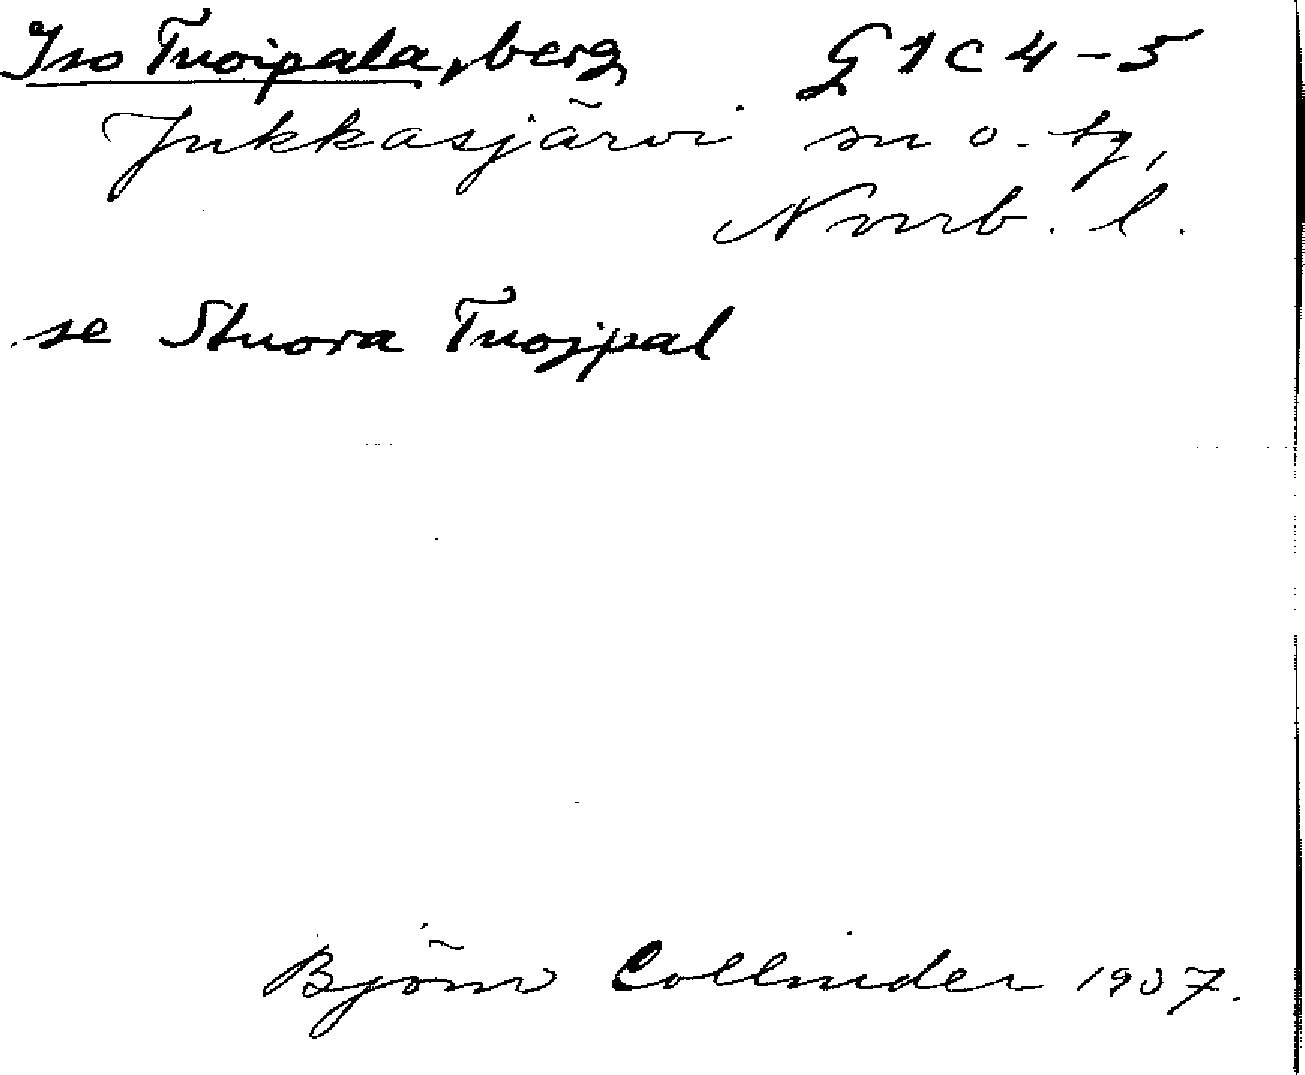 Iso Tuoipala, berg G 1 C 4-5
Jukkasjärvi sn o. tg,
Norrb. l.
se Stuora Tuojpal
Björn Collinder 1937.